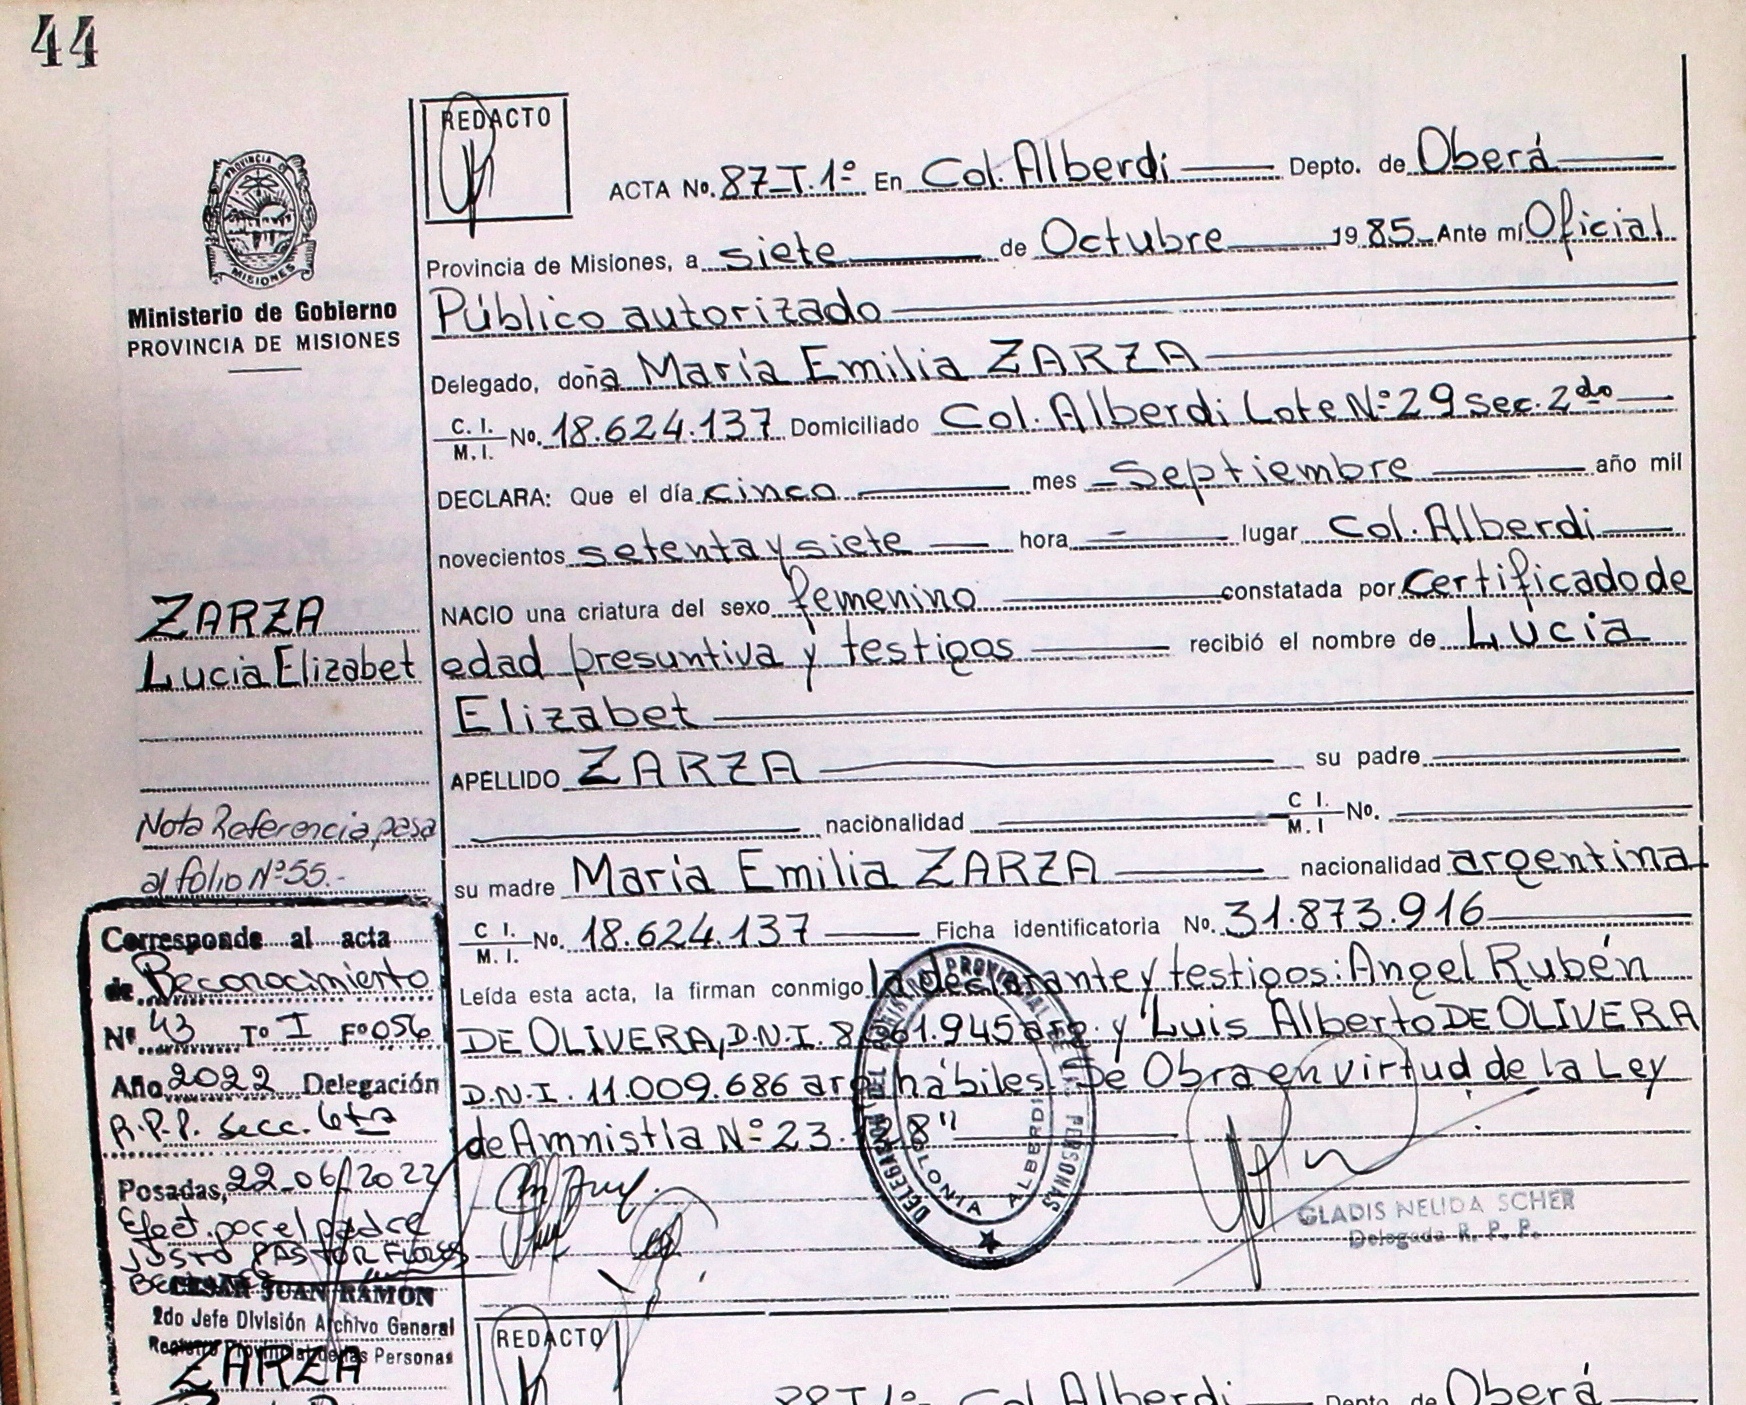 44
REDACTO
PROVINCIA DE
MISIONES
Ministerio de Gobierno
PROVINCIA DE MISIONES
ACTA No. 87_T.1º En Col. Alberdi Depto. de Oberá
Provincia de Misiones, a siete de Octubre 1985 Ante mí Oficial
Público autorizado
Delegado, doña María Emilia ZARZA
C. I. M. I. No. 18.624.137 Domiciliado Col. Alberdi Lote Nº 29 sec. 2do
DECLARA: Que el día cinco mes Septiembre año mil
novecientos setenta y siete hora lugar Col. Alberdi
NACIO una criatura del sexo femenino constatada por certificado de
edad presuntiva y testigos recibió el nombre de Lucia
Elizabet
APELLIDO ZARZA su padre
nacionalidad C I. M. I No.
su madre María Emilia ZARZA nacionalidad argentina
C I. M. I. No. 18.624.137 Ficha identificatoria No. 31.873.916
Leída esta acta, la firman conmigo la declarante y testigos: Angel Rubén
DE OLIVERA, D.N.I. 8.961.945 arg. y Luis Alberto DE OLIVERA
D.N.I. 11.009.686 arg. hábiles. "Se Obra en virtud de la Ley
de Amnistia Nº 23. 28"
DELEGACION DEL REGISTRO PROVINCIAL DE LAS PERSONAS
COLONIA ALBERDI
GLADIS NELIDA SCHER
Delegada R. P. P.
ZARZA
Lucia Elizabet
Nota Referencia, pasa
al folio Nº 55.-
Corresponde al acta
de Reconocimiento
Nº 43 Tº I Fº 056
Año 2022 Delegación
R.P.P. Secc. 6ta
Posadas, 22_06/2022
Efect. por el padre
JUSTO PASTOR FLORES
CESAR JUAN RAMON
2do Jefe División Archivo General
Registro Provincial de las Personas
ZARZA
REDACTO
88 T 1º Col. Alberdi Depto. de Oberá